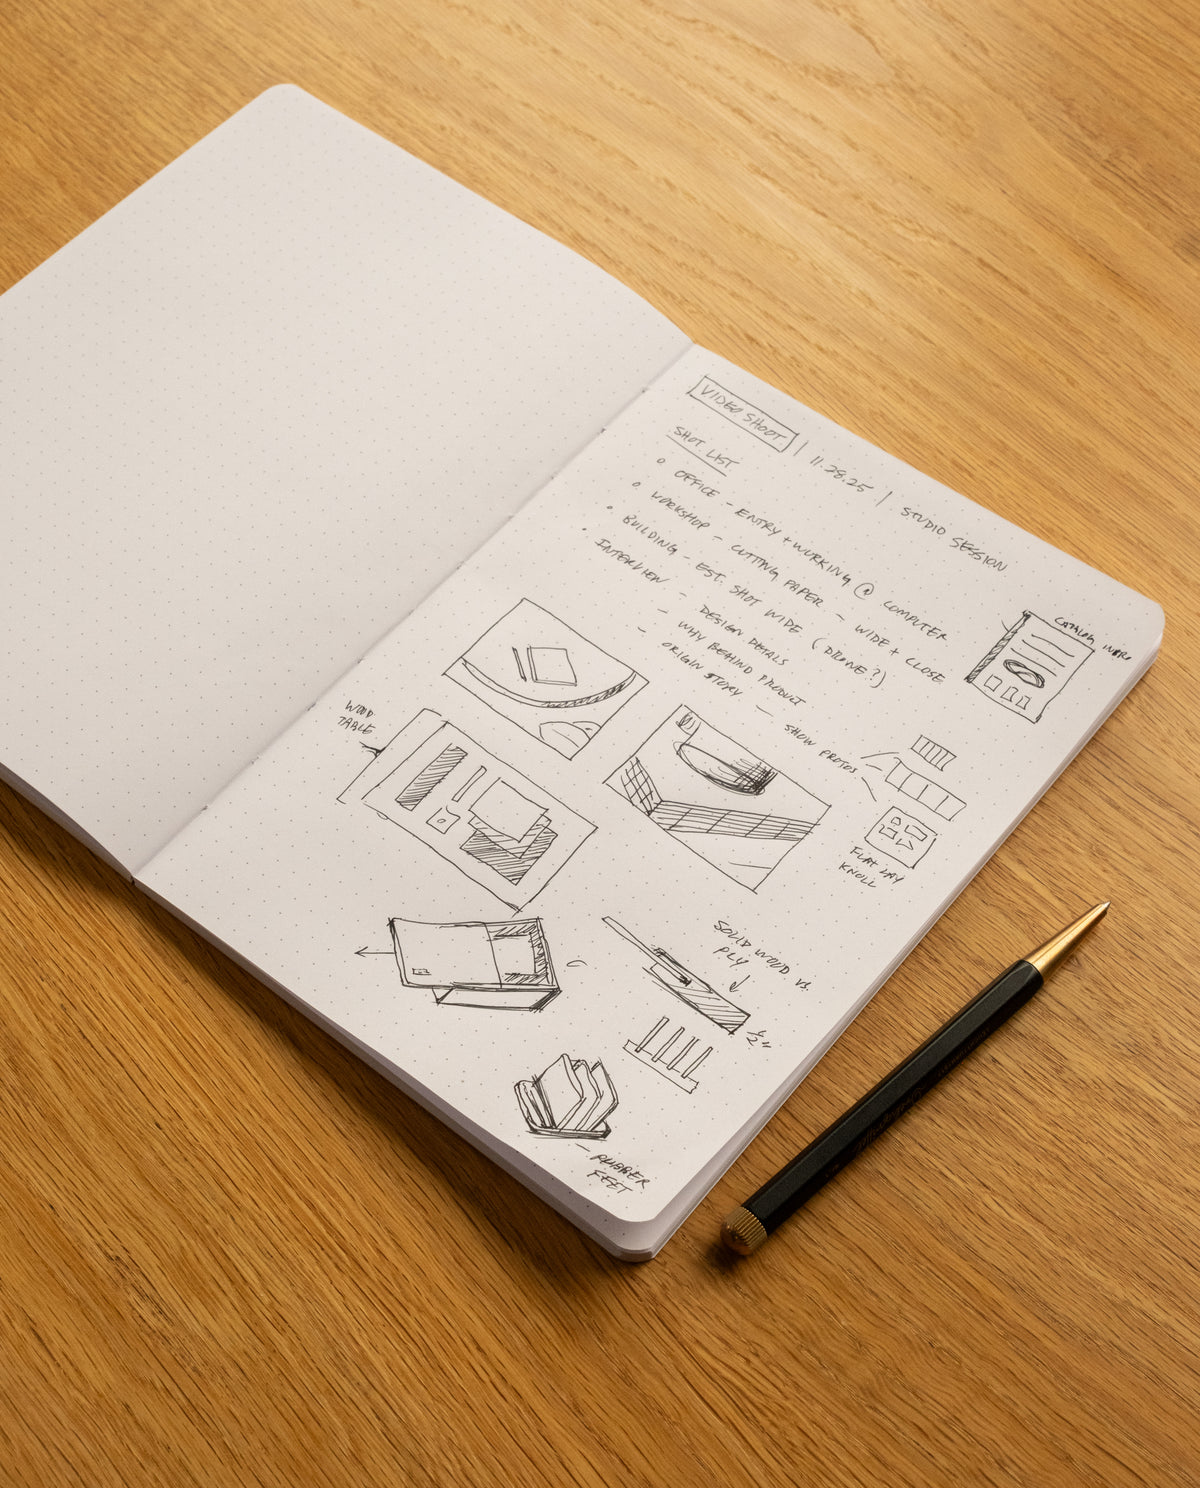 VIDEO SHOOT | 11.28.25 | STUDIO SESSION
SHOT LIST
OFFICE - ENTRY + WORKING @ COMPUTER
WORKSHOP - CUTTING PAPER - WIDE + CLOSE
BUILDING - EST. SHOT WIDE (DRONE?)
INTERVIEW - DESIGN DETAILS
- WHY BEHIND PRODUCT
- ORIGIN STORY - SHOW PROTOS
CATALOG INSPO
WOOD
TABLE
FLAT LAY
KNOLL
SOLID WOOD VS.
PLY
1/2"
- RUBBER
FEET